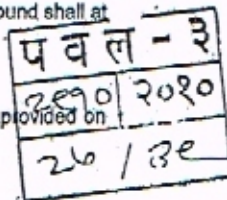 ound shall at
प व ल - ३
२९१० २०१०
provided on
२७ / ३९